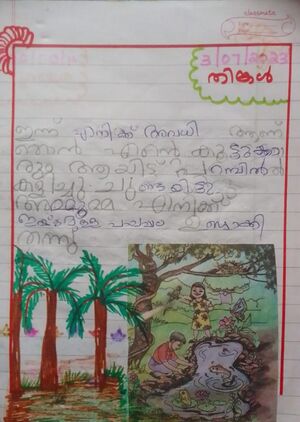 classmate
3/07/2023
തിങ്കൾ
ഇന്ന് എനിക്ക് അവധി ആണ്
ഞാൻ എന്റെ കൂട്ടുകാ
രും ആയിട്ട് പറമ്പിൽ
കളിച്ചു ചൂണ്ടയിട്ടു
അമ്മുമ്മ എനിക്ക്
ഇഷ്ടമുള്ള പലഹാരം ഉണ്ടാക്കി
തന്നു